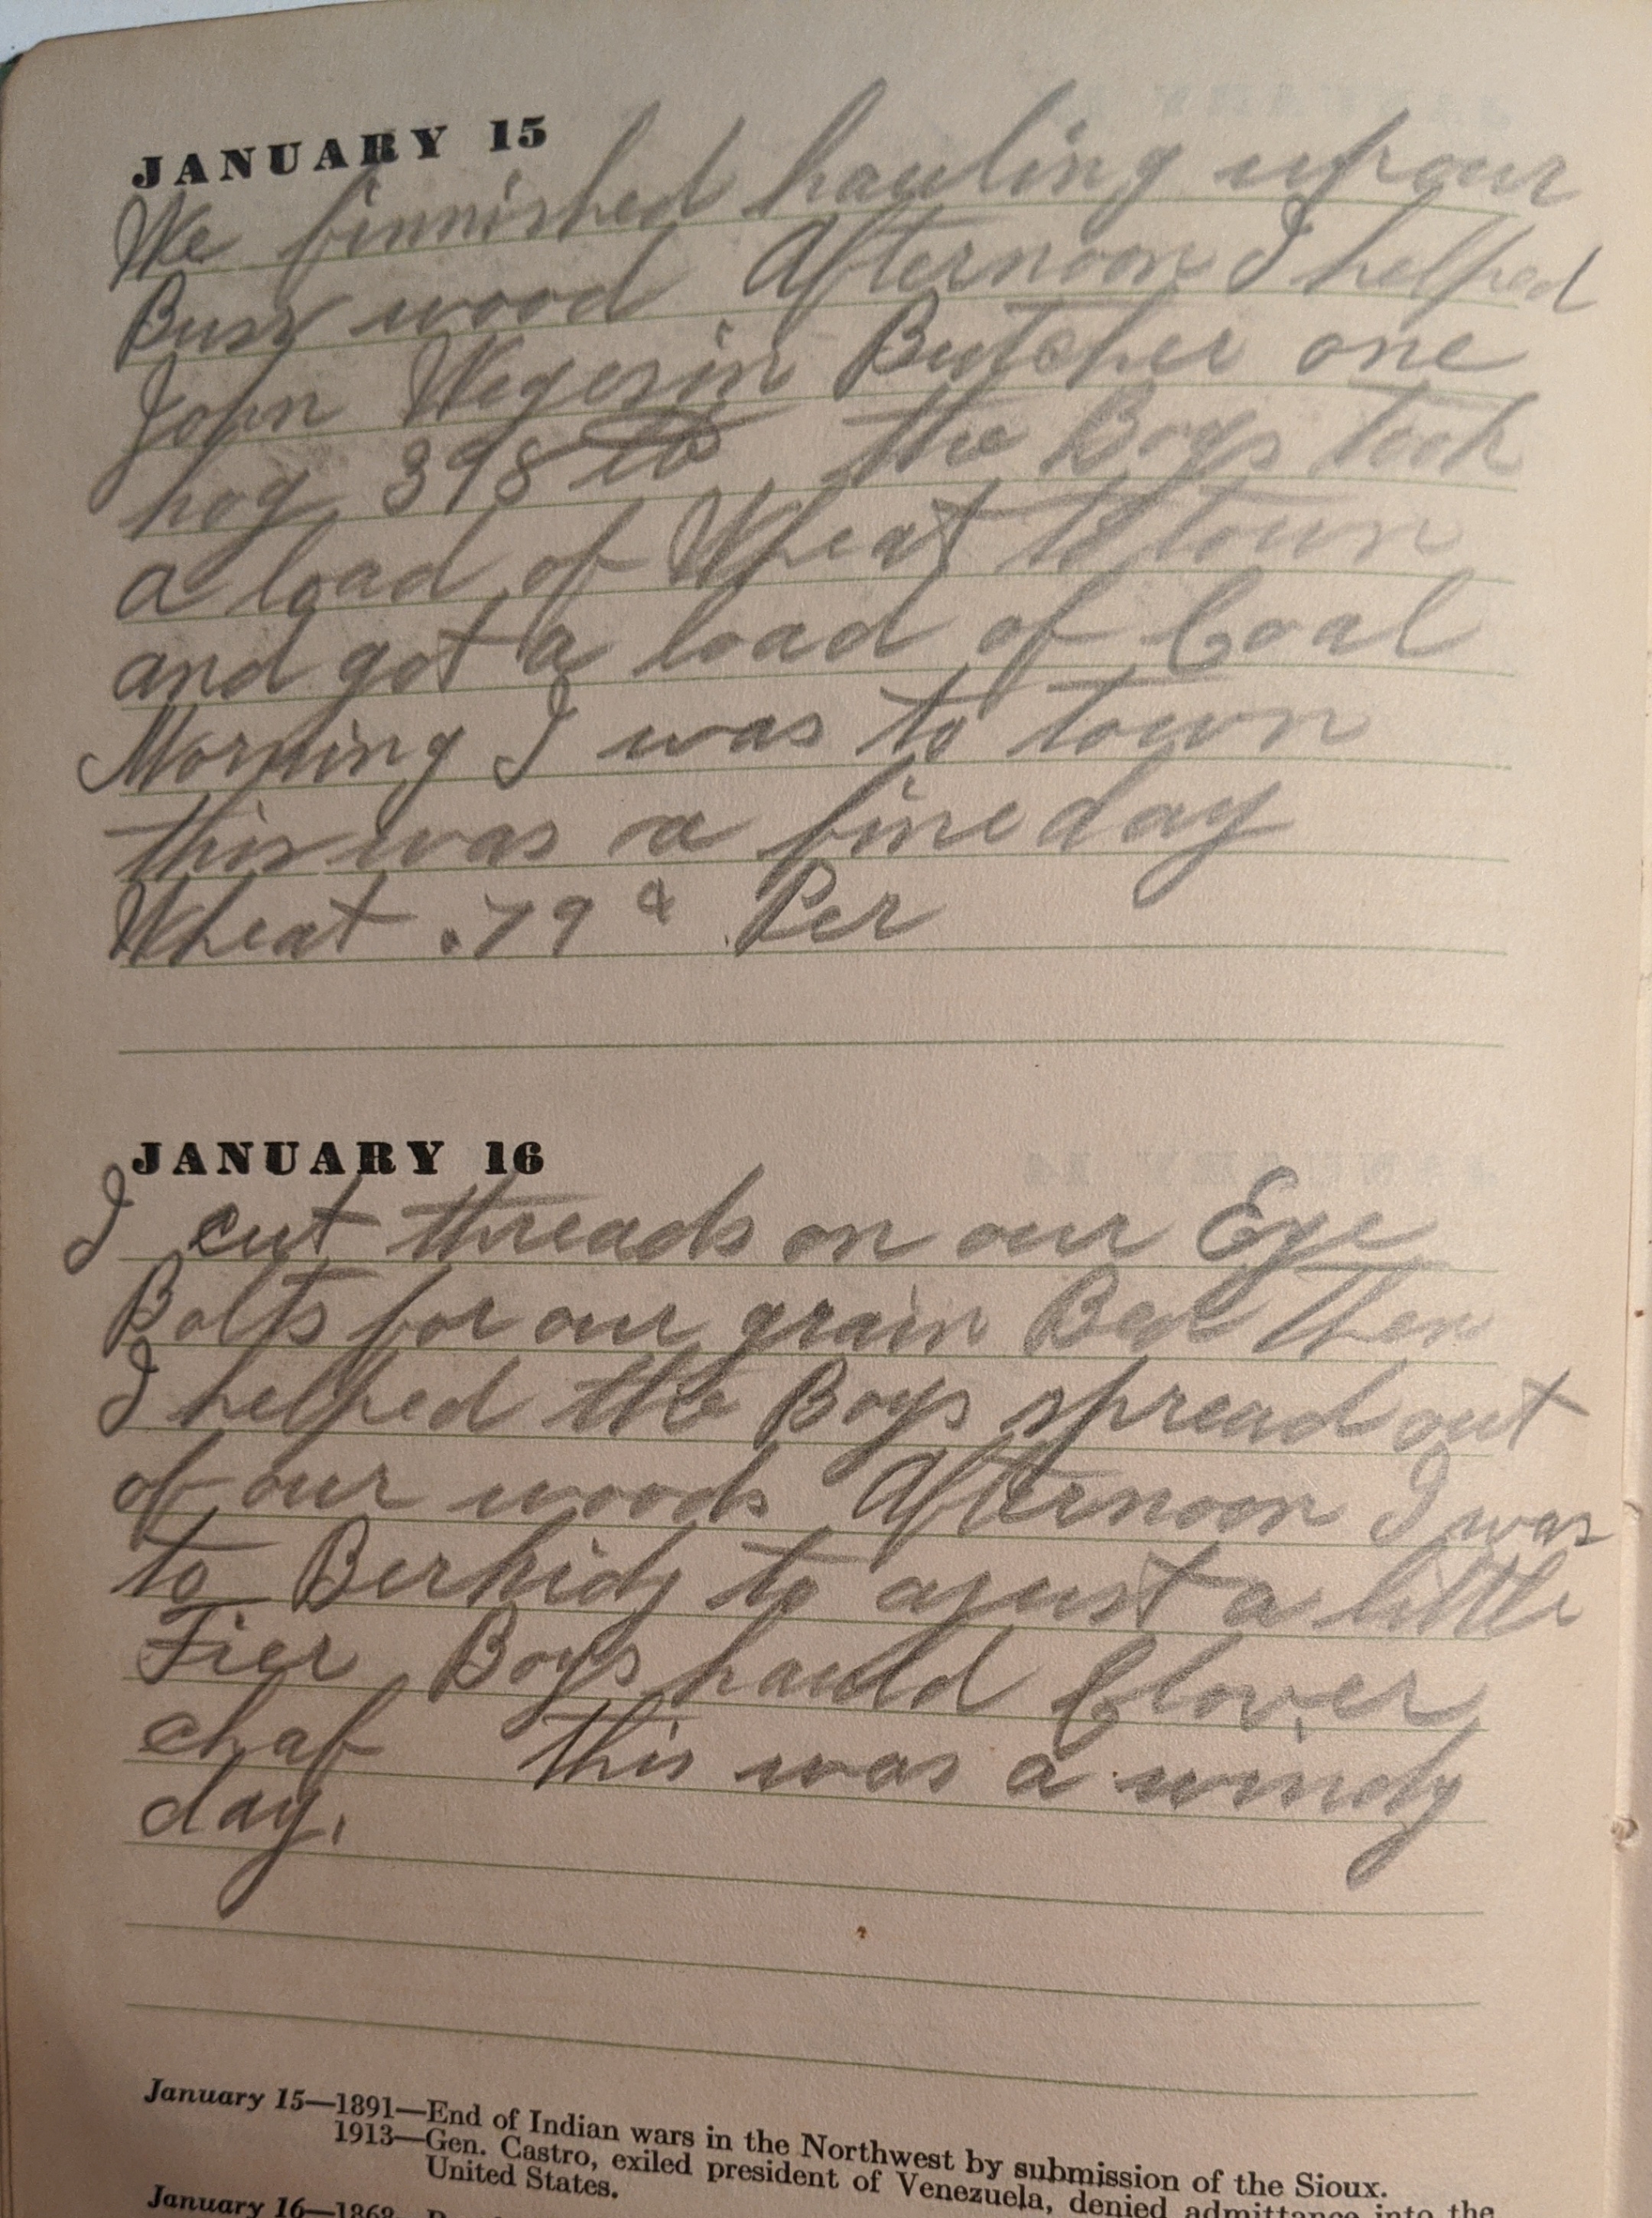 JANUARY 15
We finnished hauling up our
Buss wood Afternoon I helped
John Wegesin Butcher one
hog 398 lb the Boys took
a load of Wheat to town
and got a load of Coal
Morning I was to town
this was a fine day
Wheat .79 ¢ Per
JANUARY 16
I cut threads on our Eye
Bolts for our grain Bed Then
I helped the Boys spread out
of our woods Afternoon I was
to to ajust a little
Fier Boys hauld Clover
chaf this was a windy
day.
January 15—1891—End of Indian wars in the Northwest by submission of the Sioux.
1913—Gen. Castro, exiled president of Venezuela, denied admittance into the
United States.
January 16—1868